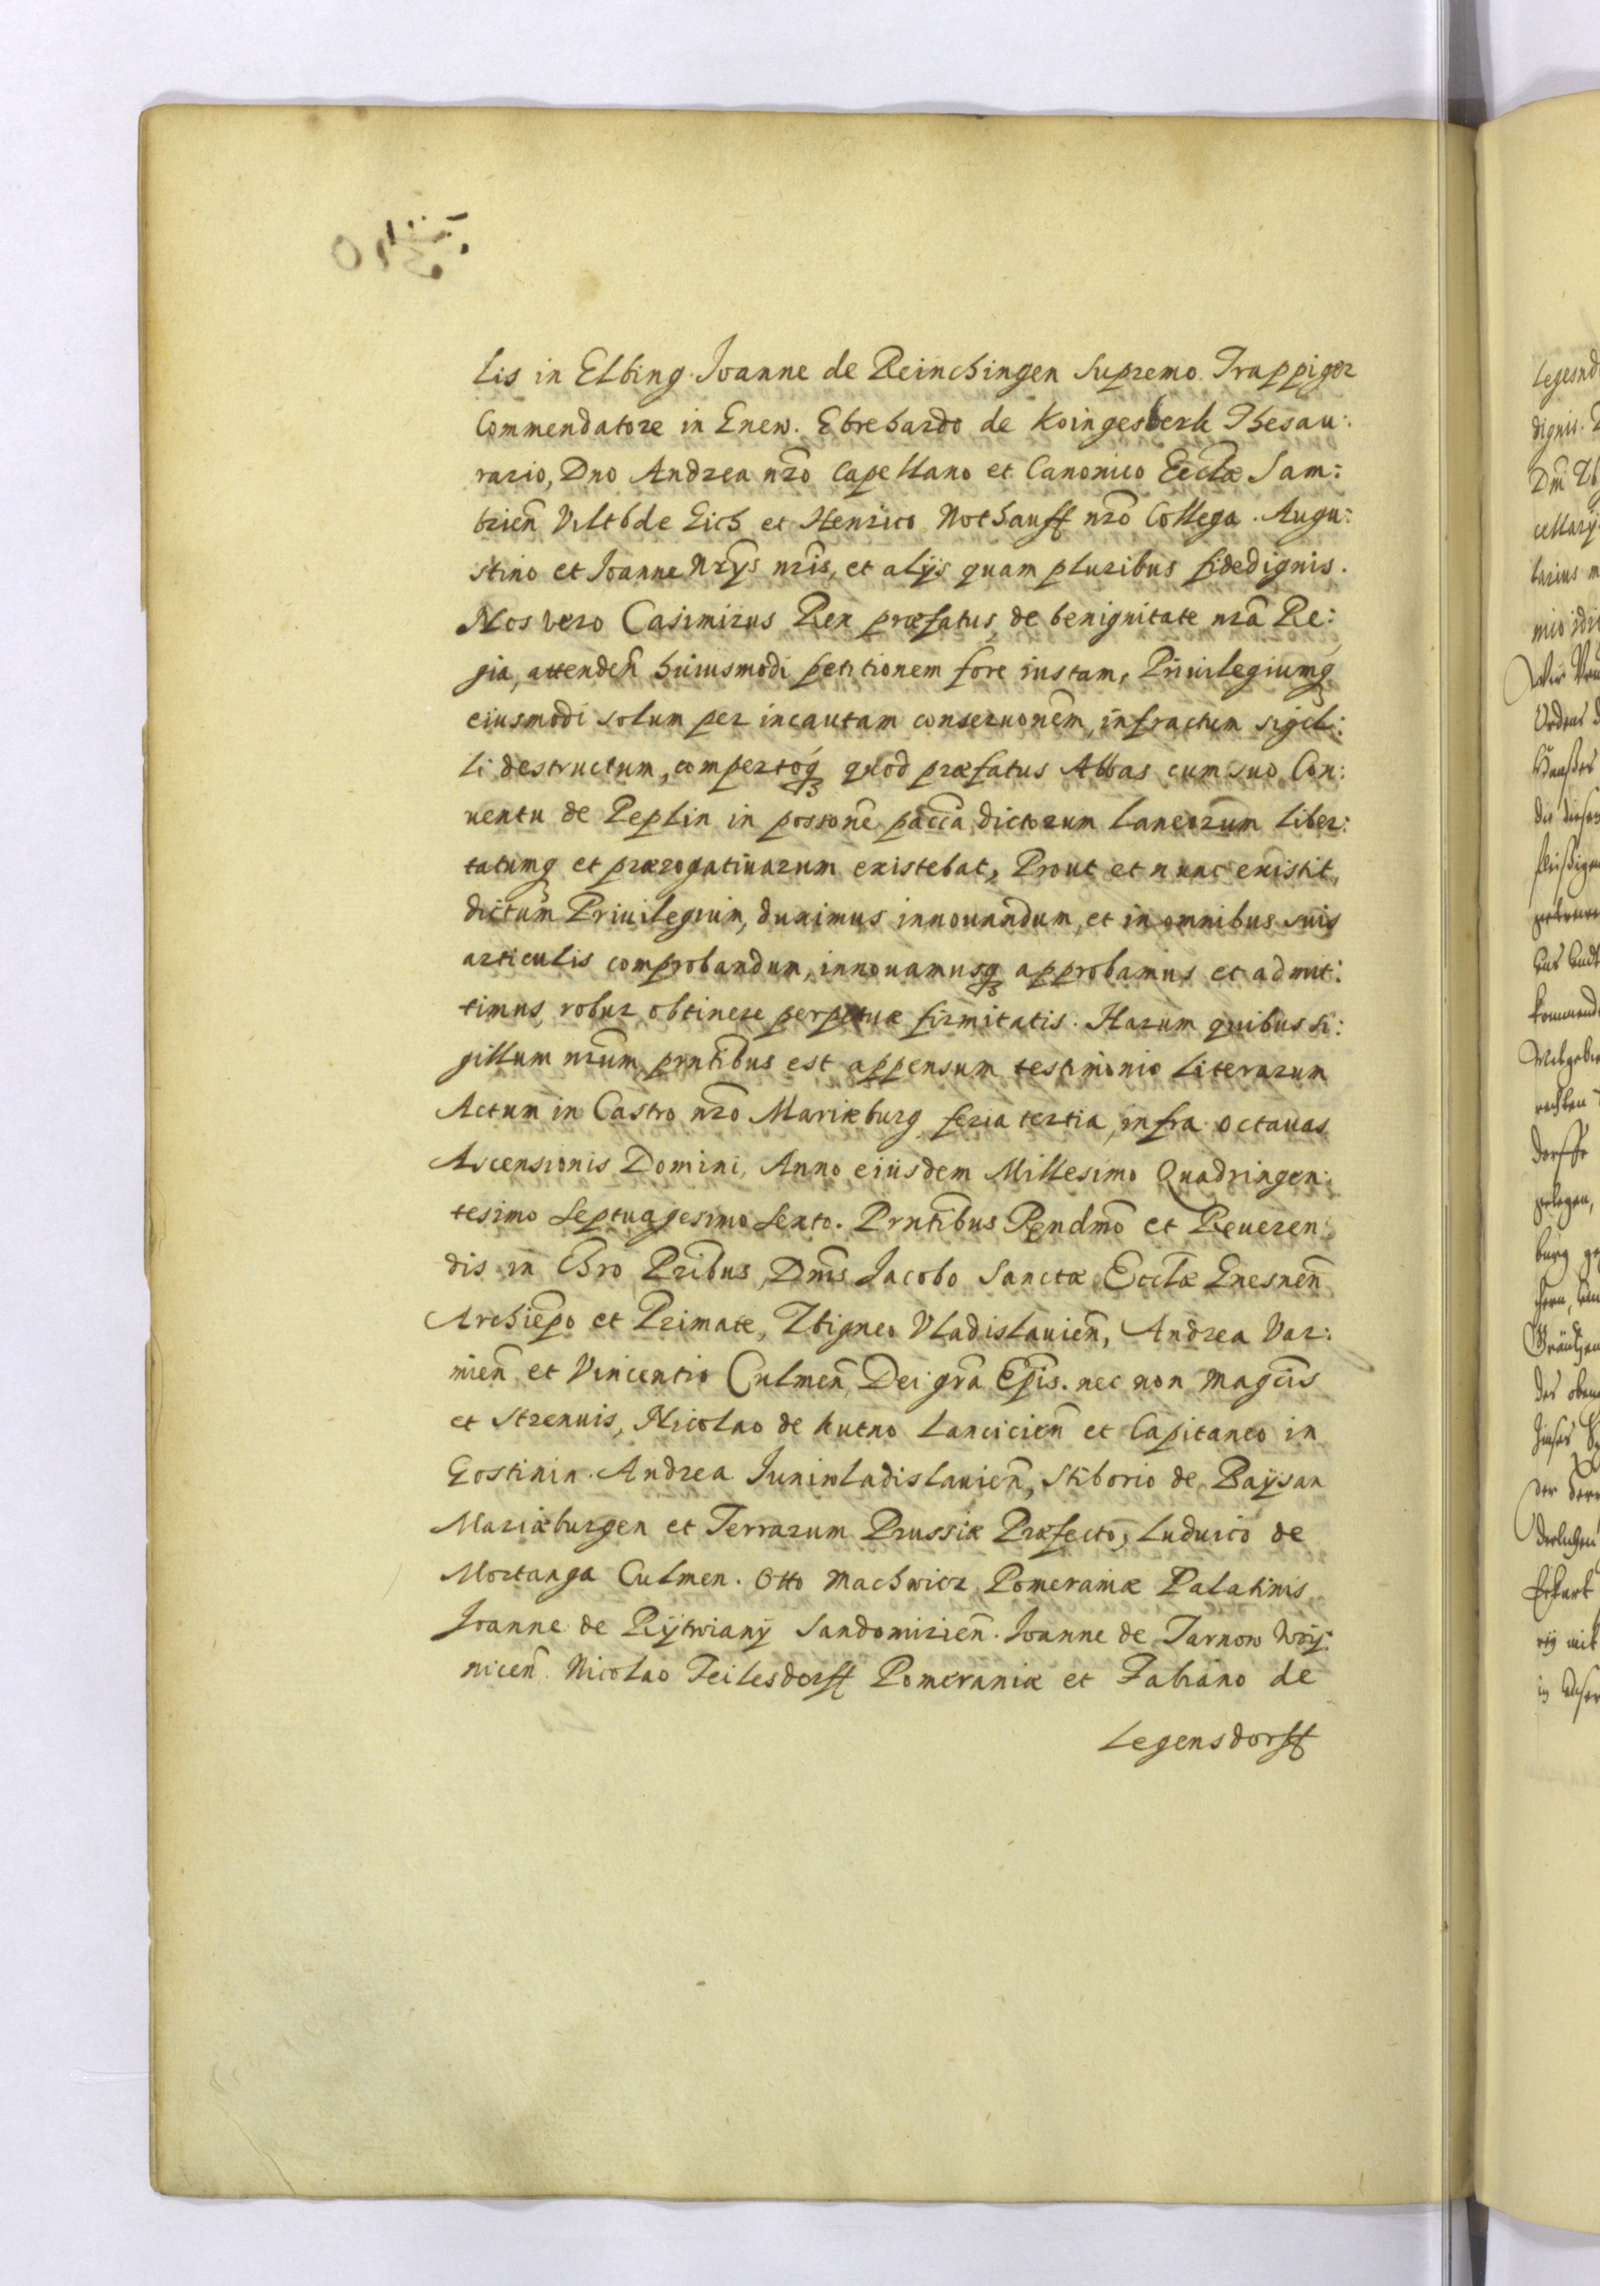 lis in Elbing. Joanne de Reinchingen Supremo Trappiger
Commendatore in Enew. Ebrehardo de Koingesberk Thesau:
rario, Dno Andrea nr̃o Capellano et Canonico Eccl̃æ Sam:
brieñ Viltb de Eich et Henrico Nothaufft nr̃o Collega. Augu:
stino et Joanne Nr̃ys nr̃is, et alÿs quam pluribus fidedignis.
Nos vero Casimirus Rex præfatus, de benignitate nr̃a Re:
gia, attendeñ huiusmodi petitionem fore iustam, Priuilegiumq
eiusmodi solum per incautam conseruoñem, infractum sigil:
li destructum, compertóq quod præfatus Abbas cum suo Con:
uentu de Peplin in possoñe pac̃ca dictorum Laneorum liber:
tatumq et prærogatiuarum existebat, Prout et nunc existit,
dictum Priuilegium, duximus innouandum, et in omnibus suis
articulis comprobandum, innouamusq approbamus et admit:
timus, robur obtinere perpetuæ firmitatis. Harum quibus si:
gillum nr̃um prñtibus est appensum testimonio literarum
Actum in Castro nr̃o Mariæburg feria tertia infra octauas
Ascensionis Domini, Anno eiusdem Millesimo Quadringen:
tesimo Septuagesimo Sexto. Prñtibus Rendm̃o et Reueren:
dis in Chr̃o Pr̃ibus, Dñis Jacobo Sanctæ Eccl̃æ Gnesneñ
Archiep̃o et Primate, Zbigneo Vladislauieñ, Andrea Var:
mieñ et Vincentio Culmeñ, Dei gr̃a Ep̃is. nec non magc̃is
et strenuis, Nicolao de Kutno Lancicieñ et Capitaneo in
Gostinin. Andrea Juniuladislauieñ, Stiborio de Baÿsan
Mariæburgen et Terrarum Prussiæ Præfecto, Luduico de
Mortanga Culmen. Otto Machwicz Pomeraniæ Palatinis,
Joanne de Rÿtwianÿ Sandomirieñ. Joanne de Tarnow Woÿ:
niceñ. Nicolao Teilesdorff Pomeraniæ et Fabiano de
Legensdorff